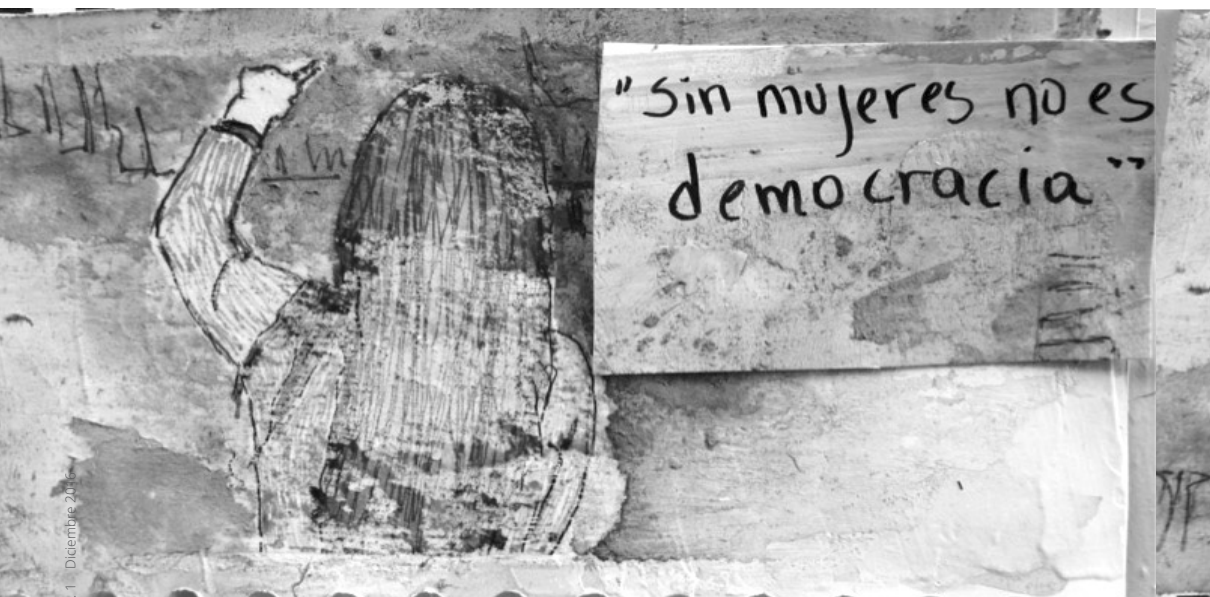 "Sin mujeres no es
democracia"
1 Diciembre 2016